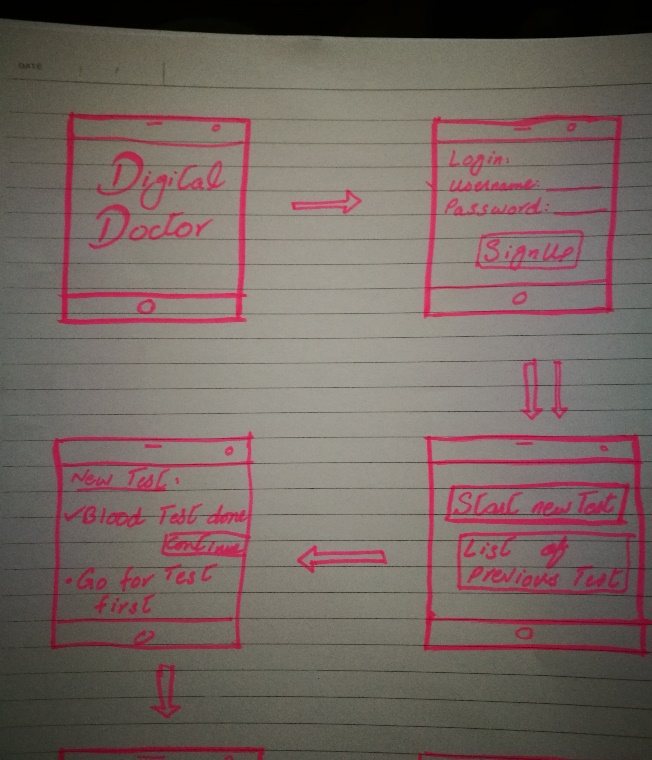 DATE
Digital
Doctor
Login:
Username:
Password:
SignUp
Start new Test
List of
Previous Test
New Test:
✓Blood Test done
Continue
• Go for Test
first